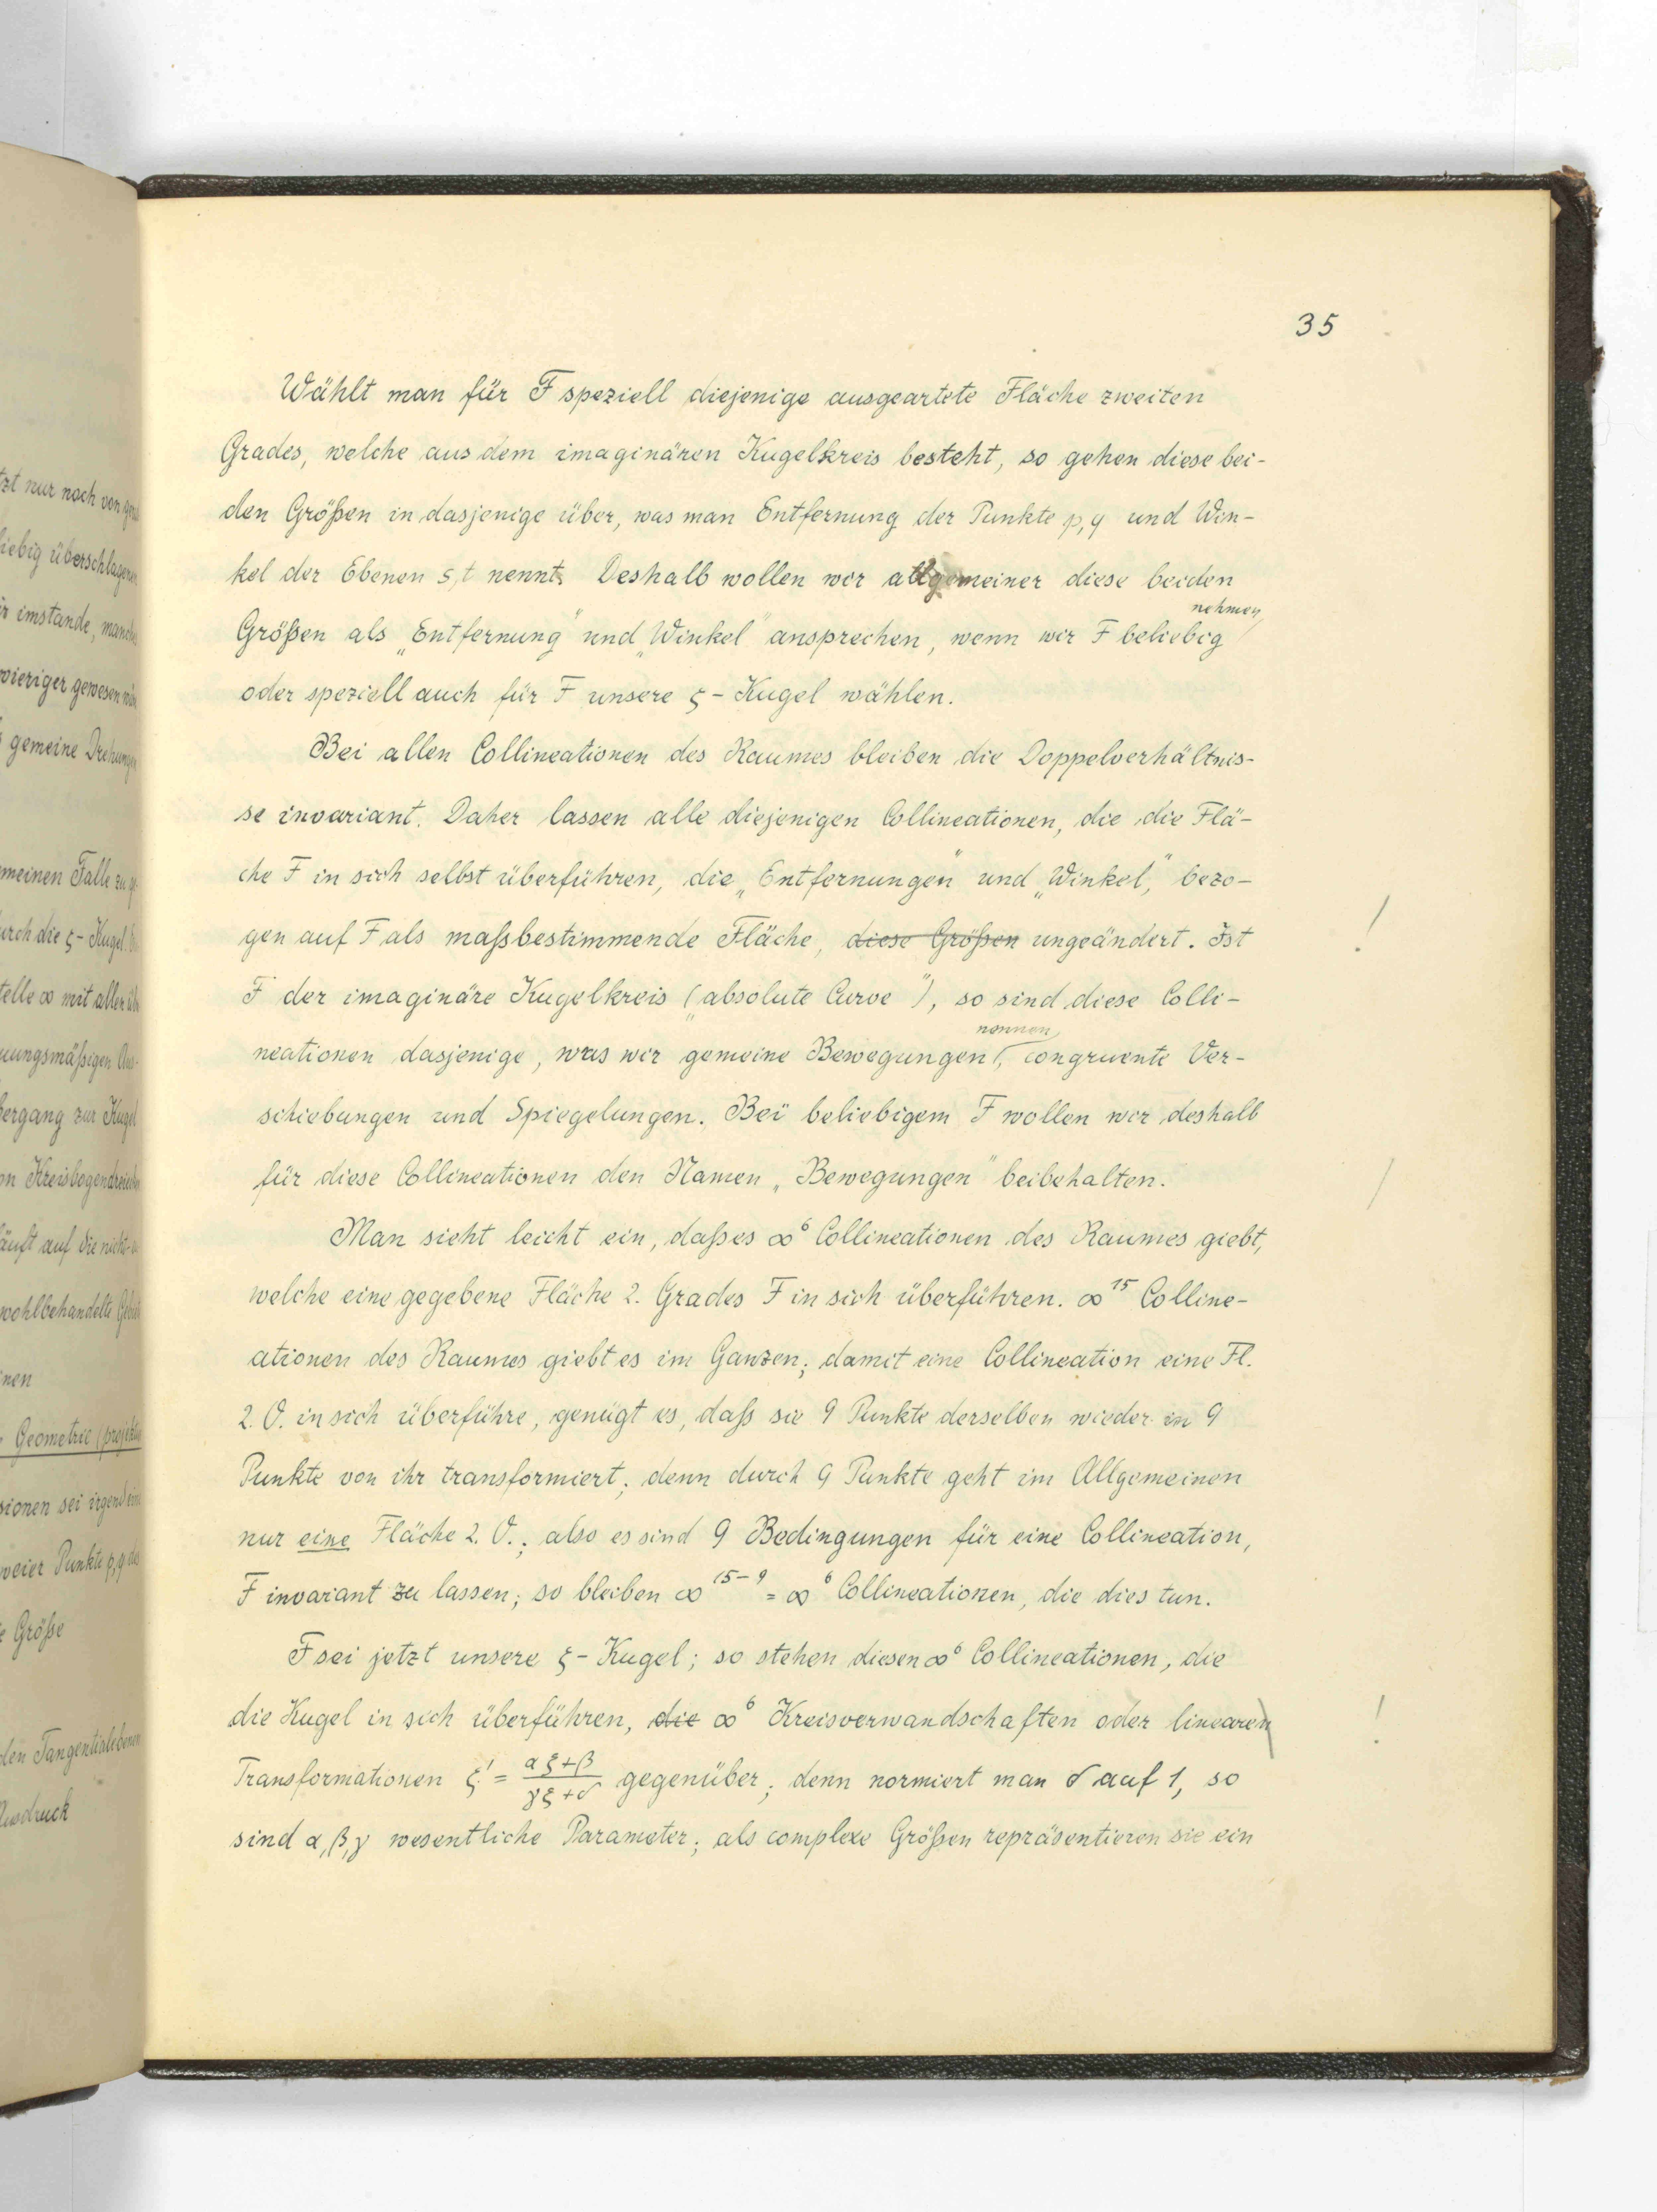 35
Wählt man für F speziell diejenige ausgeartete Fläche zweiten
Grades, welche aus dem imaginären Kugelkreis besteht, so gehen diese bei-
den Größen in dasjenige über, was man Entfernung der Punkte p, q und Win-
kel der Ebenen s, t nennt. Deshalb wollen wir allgemeiner diese beiden
nehmen,
Größen als „Entfernung" und „Winkel" ansprechen, wenn wir F beliebig
oder speziell auch für F unsere ζ-Kugel wählen.
Bei allen Collineationen des Raumes bleiben die Doppelverhältnis-
se invariant. Daher lassen alle diejenigen Collineationen, die die Flä-
che F in sich selbst überführen, die „Entfernungen" und „Winkel," bezo-
gen auf F als maßbestimmende Fläche, diese Größen ungeändert. Ist
F der imaginäre Kugelkreis („absolute Curve"), so sind diese Colli-
nennen
neationen dasjenige, was wir gemeine Bewegungen, congruente Ver-
schiebungen und Spiegelungen. Bei beliebigem F wollen wir deshalb
für diese Collineationen den Namen „Bewegungen" beibehalten.
Man sieht leicht ein, daß es ∞⁶ Collineationen des Raumes giebt,
welche eine gegebene Fläche 2. Grades F in sich überführen. ∞¹⁵ Colline-
ationen des Raumes giebt es im Ganzen; damit eine Collineation eine Fl.
2. O. in sich überführe, genügt es, daß sie 9 Punkte derselben wieder in 9
Punkte von ihr transformiert; denn durch 9 Punkte geht im Allgemeinen
nur eine Fläche 2. O.; also es sind 9 Bedingungen für eine Collineation,
F invariant zu lassen; so bleiben ∞¹⁵⁻⁹ = ∞⁶ Collineationen, die dies tun.
F sei jetzt unsere ζ-Kugel; so stehen diesen ∞⁶ Collineationen, die
die Kugel in sich überführen, die ∞⁶ Kreisverwandschaften oder linearen
Transformationen ζ' = (αζ+β)/(γζ+δ) gegenüber; denn normiert man δ auf 1, so
sind α, β, γ wesentliche Parameter; als complexe Größen repräsentieren sie ein